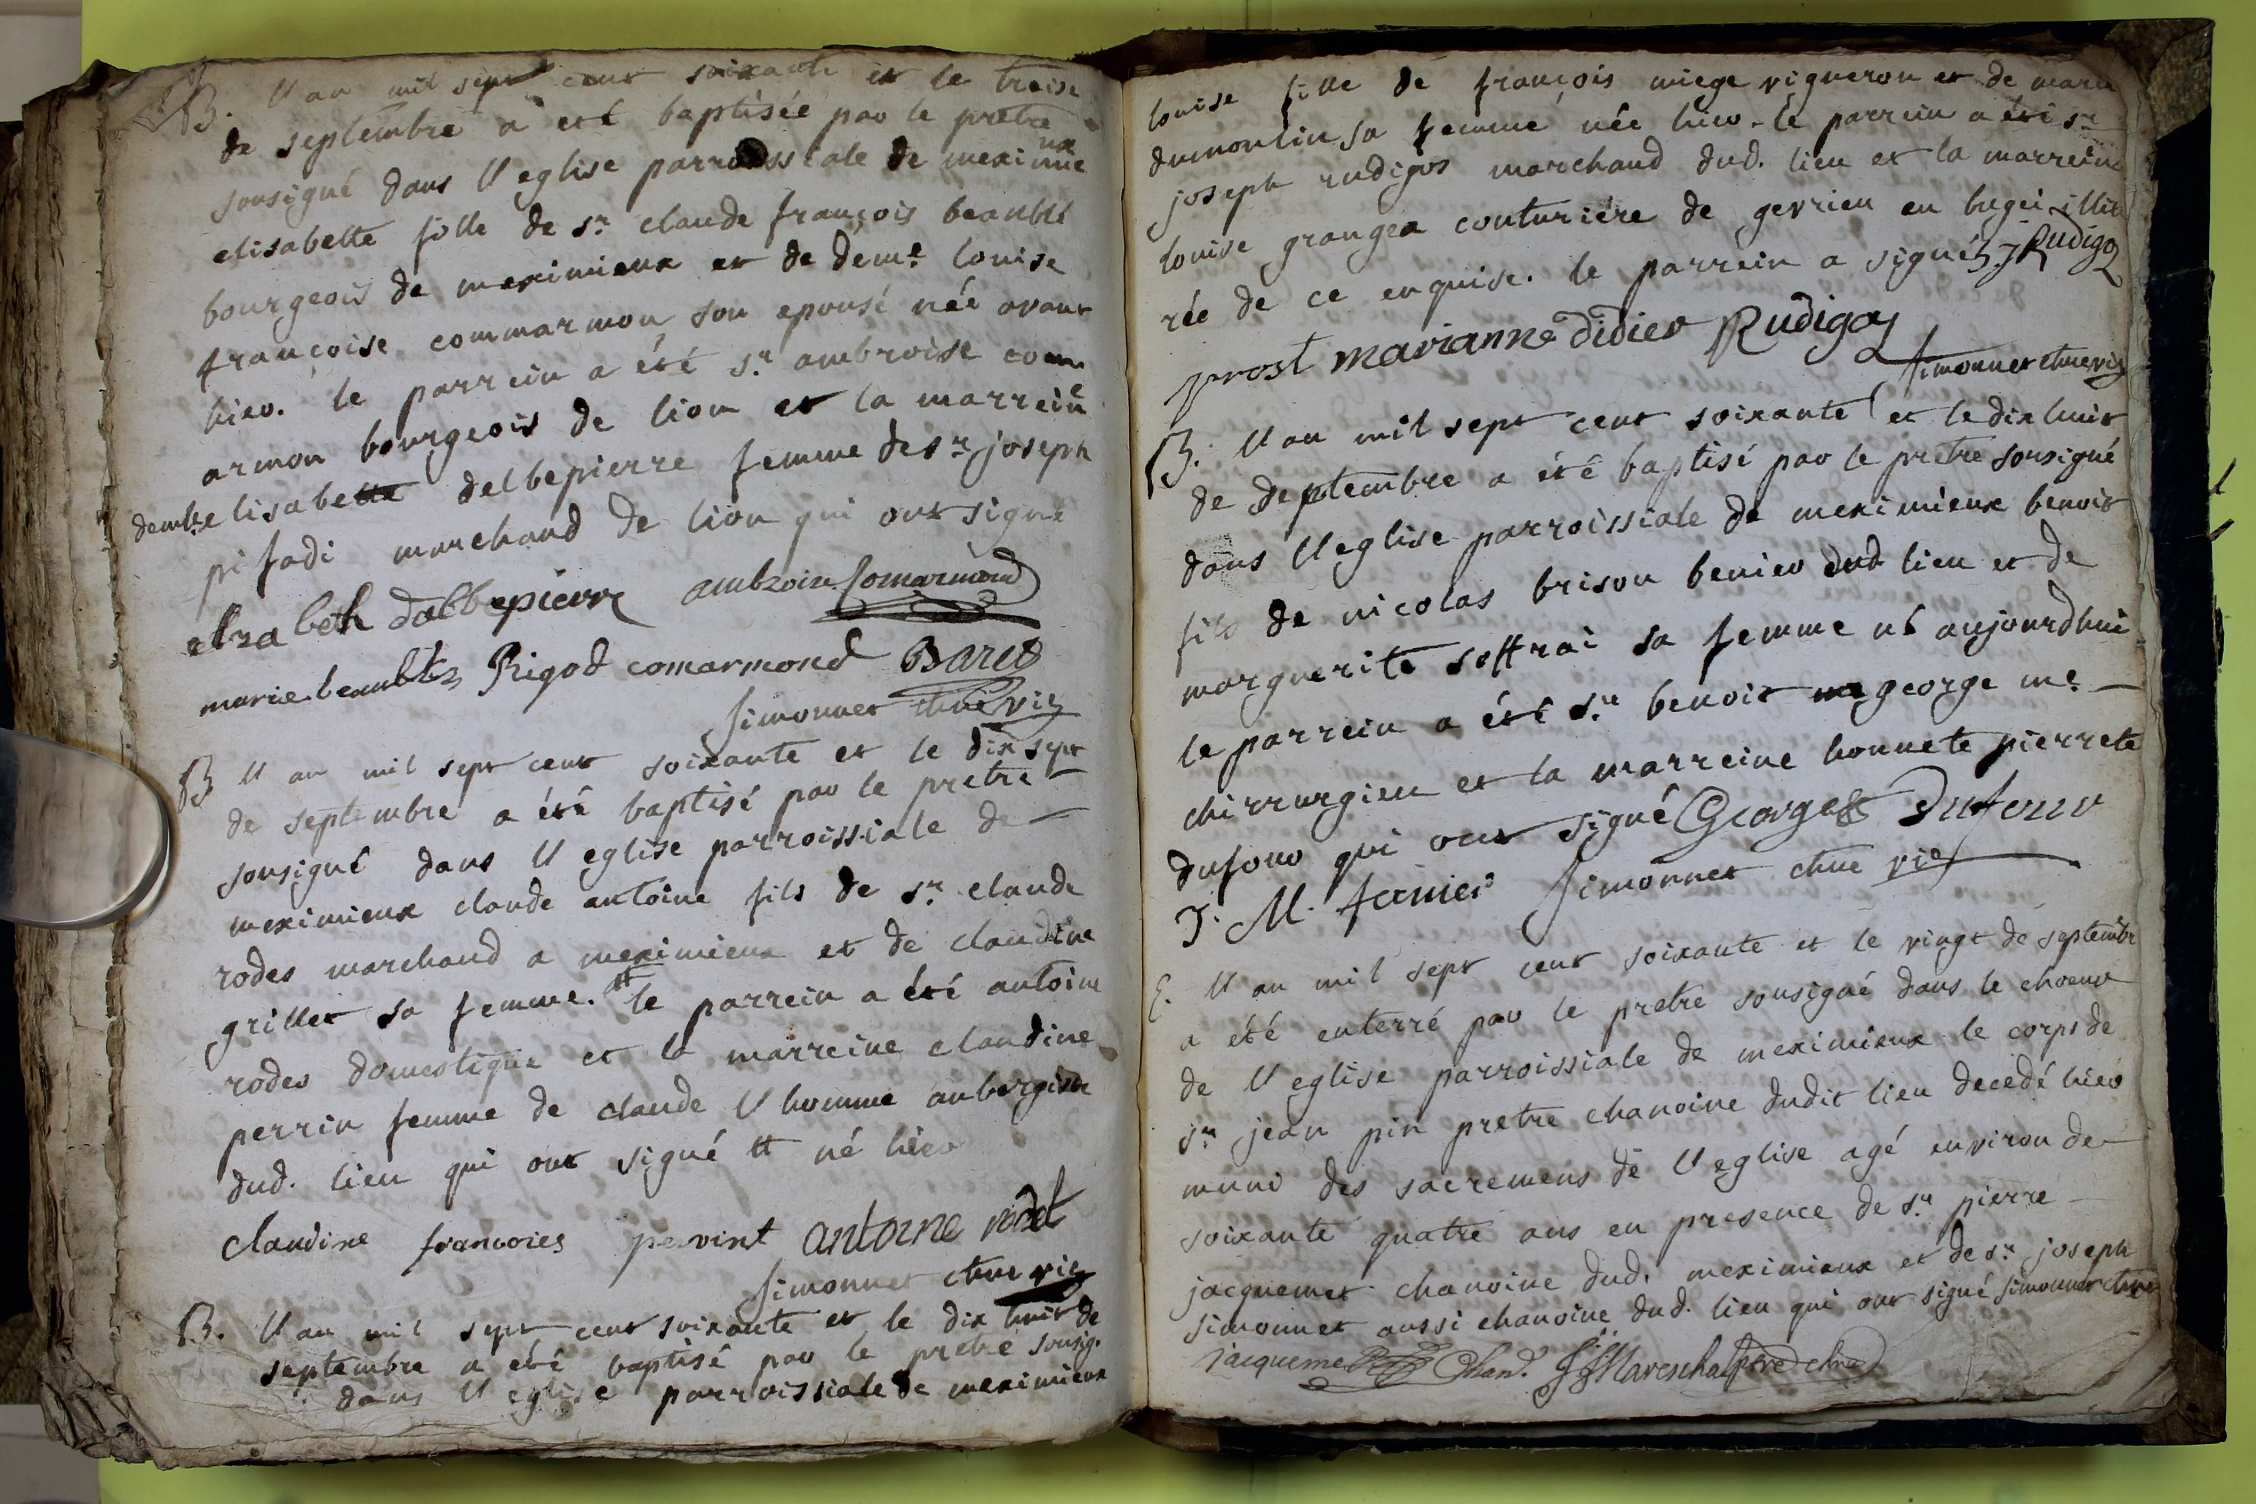 B. l'an mil sept cent soixante et le treise
de septembre a eté baptisée par le pretre
sousigné dans l'eglise parroissiale de meximieux
elisabette fille de sr. claude françois beaublé
bourgeois de meximieux et de demle louise
françoise commarmon son epouse née avant
hier. le parrein a été sr. ambroise comm
armon bourgeois de lion et la marreine
demlle elisabette delbepierre femme de sr. joseph
pisadi marchand de lion qui ont signé
elzabeth dalbepierre ambroise Comarmond
marie beaublez Rigod comarmond Baret
simonnet chne vic
B l'an mil sept cent soixante et le dix sept
de septembre a été baptisé par le pretre
sousigné dans l'eglise parroissiale de
meximieux claude antoine fils de sr. claude
rodes marchand a meximieux et de claudine
grillet sa femme. # le parrein a été antoine
rodes domestique et la marreine claudine
perrin femme de claude l'homme aubergiste
dud. lieu qui ont signé # né hier
claudine francoies pervint antoine rodet
simonnet chne vic
B. l'an mil sept cent soixante et le dix huit de
septembre a été baptisé par le pretre sousig.
dans l'eglise parroissiale de meximieux
louise fille de françois miege vigneron et de marie
dumoulin sa femme née hier. le parrein a été sr
joseph rudigos marchand dud. lieu et la marreine
louise grangea couturiére de gevrieu en bugei illit
rée de ce enquise. le parrein a signé J Rudigoz
prost marianne didier Rudigoz
simonnet chne vic
B. l'an mil sept cent soixante et le dix huit
de septembre a été baptisé par le pretre sousigné
dans l'eglise parroissiale de meximieux benoit
fils de nicolas brison benier dud lieu et de
marguerite soffrai sa femme né aujourdhui
le parrein a été sr. benoit george me.
chirrurgien et la marreine honnete pierrete
dufour qui ont signé George Dufour
J. M. fanier simonnet chne vic
E. l'an mil sept cent soixante et le vingt de septembre
a été enterré par le pretre sousigné dans le choeur
de l'eglise parroissiale de meximieux le corps de
sr. jean pin pretre chanoine dudit lieu decedé hier
muni des sacremens de l'eglise agé environ de
soixante quatre ans en presence de sr. pierre
jacquemet chanoine dud. meximieux et de sr. joseph
simonnet aussi chanoine dud. lieu qui ont signé simonnet chne
jacquemet Chan. Mareschal pbre chne